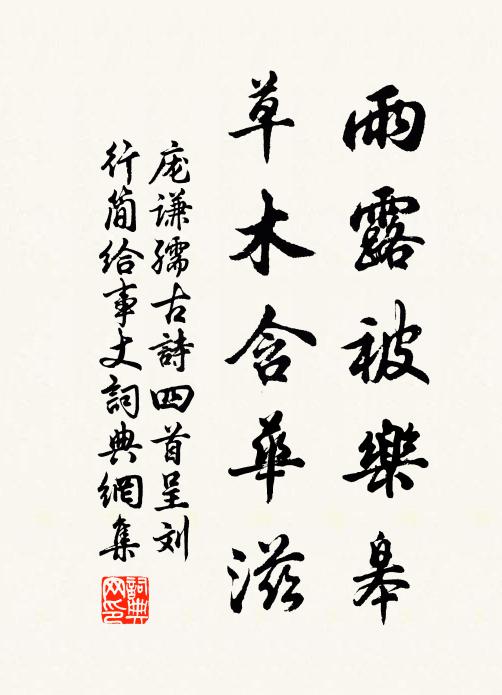 雨露被樂皋
草木含華滋
庞谦孺古詩四首呈刘
行简给事文詞典網集
詞典网印